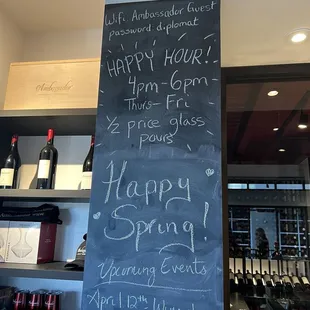 Wifi: Ambassador Guest
password diplomat
HAPPY HOUR!
4pm-6pm
Thurs-Fri
1/2 price glass
pours
Happy
Spring!
Upcoming Events
April 12th